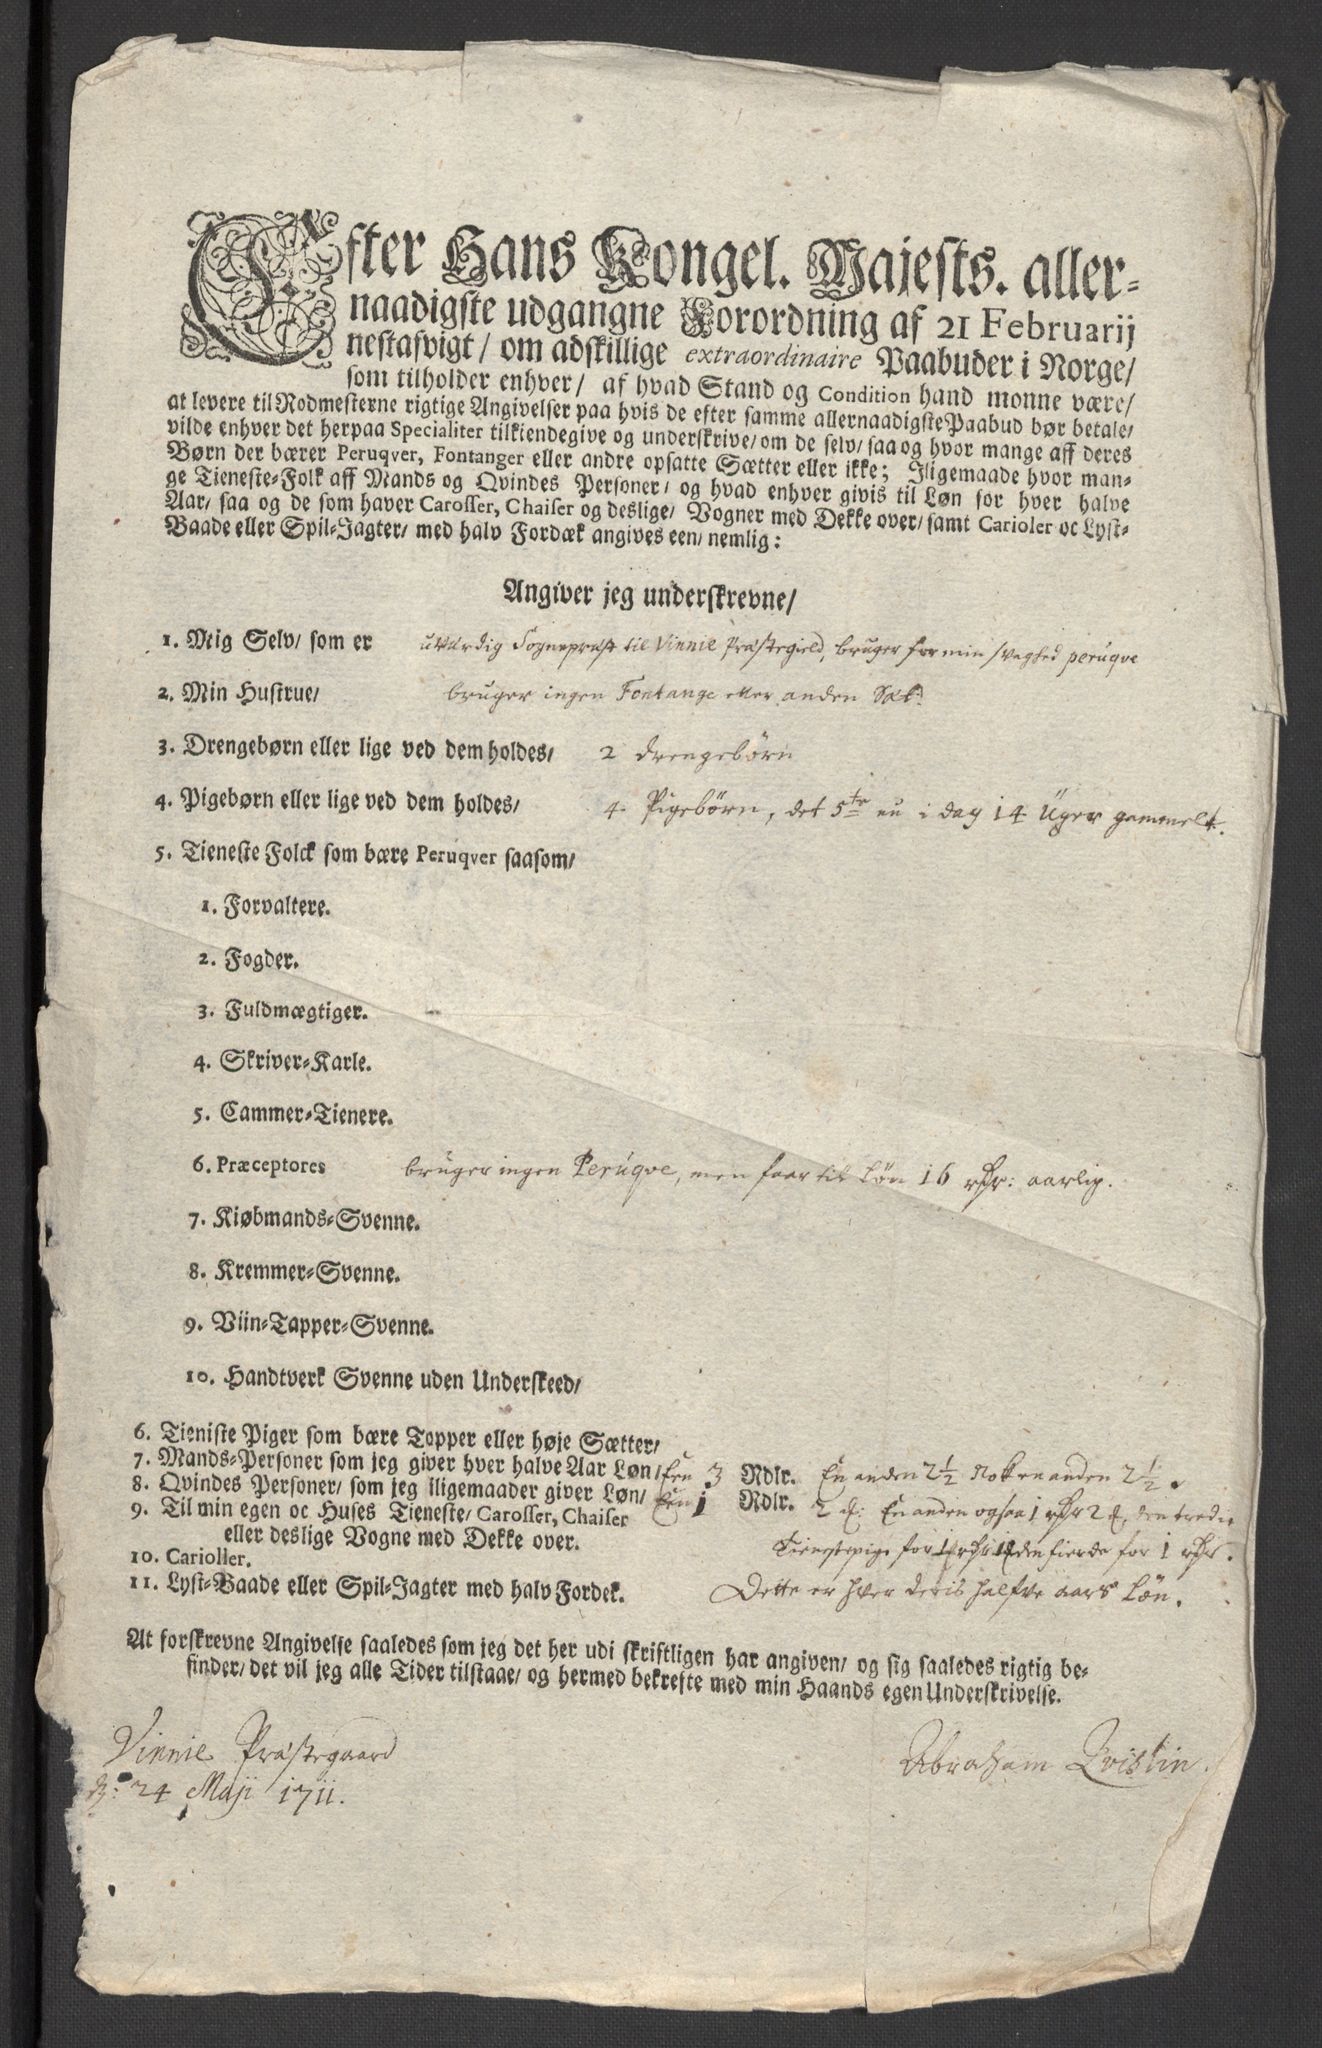 Efter Hans Kongel. Majests. aller-
naadigste udgangne Forordning af 21 Februarij
nestafvigt/ om adskillige extraordinaire Paabuder i Norge/
som tilholder enhver/ af hvad Stand og Condition hand monne være/
at levere til Rodmesterne rigtige Angivelser paa hvis de efter samme allernaadigste Paabud bør betale/
vilde enhver det herpaa Specialiter tilkiendegive og underskrive/ om de selv/ saa og hvor mange aff deres
Børn der bærer Peruqver, Fontanger eller andre opsatte Sætter eller ikke; Jligemaade hvor man-
ge Tieneste-Folk aff Mands og Qvindes Personer/ og hvad enhver givis til Løn for hver halve
Aar/ saa og de som haver Carosser, Chaiser og deslige/ Vogner med Dekke over/ samt Carioler oc Lyst-
Baade eller Spil-Jagter/ med halv Fordæk angives een/ nemlig:
Angiver jeg underskrevne/
1. Mig Selv/ som er uværdig Sogneprest til Vinnie Præstegield, bruger for min svaghed peruqve
2. Min Hustrue/ bruger ingen Fontange eller anden Sæt:
3. Drengebørn eller lige ved dem holdes/ 2 drengebörn
4. Pigebørn eller lige ved dem holdes/ 4 Pigebörn, det 5te nu i dag 14 Uger gammelt.
5. Tieneste Folck som bære Peruqver saasom/
1. Forvaltere.
2. Fogder.
3. Fuldmægtiger.
4. Skriver-Karle.
5. Cammer-Tienere.
6. Præceptores bruger ingen Perúqve, men faar til Løn 16 rdr: aarlig.
7. Kiøbmands-Svenne.
8. Kremmer-Svenne.
9. Viin-Tapper-Svenne.
10. Handtverk Svenne uden Underskeed/
6. Tieniste Piger som bære Topper eller høje Sætter/
7. Mands-Personer som jeg giver hver halve Aar Løn/ Een 3 Rdlr. En anden 2½ Nok en anden 2½.
8. Qvindes Personer/ som jeg iligemaader giver Løn/ Een 1 Rdlr. 2 En anden ogsaa 1 rdr 2 den tredie
9. Til min egen oc Huses Tieneste/ Carosser, Chaiser
eller deslige Vogne med Dekke over. Tienestepige for den fierde for 1 rdr.
10. Carioller.
11. Lyst-Baade eller Spil-Jagter med halv Fordek. Dette er hver deris halfve aars Løn.
At forskrevne Angivelse saaledes som jeg det her udi skriftligen har angiven/ og sig saaledes rigtig be-
finder/ det vil jeg alle Tider tilstaae/ og hermed bekrefte med min Haands egen Underskrivelse.
Vinnie Præstegaard
d: 24 Maji 1711.
Abraham Qvislin.